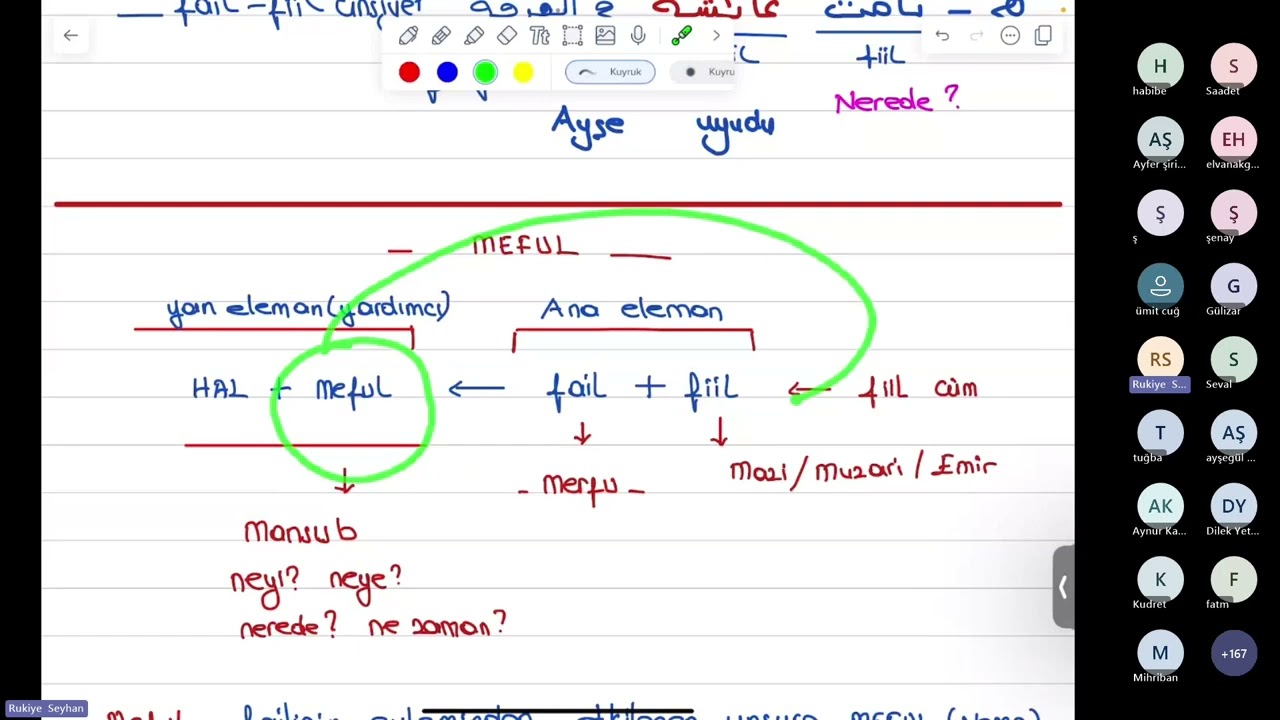 fail - fiil cinsiyet في الغرفة عائشة نامت
fiil
Kuyruk
Nerede ?
Ayşe uyudu
MEFUL
yan eleman (yardımcı) Ana eleman
HAL + meful ← fail + fiil ← fiil cüm
merfu mazi / muzari / Emir
mansub
neyi? neye?
nerede? ne zaman?
habibe
Saadet
AŞ
Ayfer şiri...
EH
elvanakg...
Ş
ş
Ş
şenay
ümit cuğ
G
Gülizar
RS
Rukiye S...
S
Seval
T
tuğba
AŞ
ayşegül ...
AK
Aynur Ka...
DY
Dilek Yet...
K
Kudret
F
fatm
M
Mihriban
+167
Rukiye Seyhan